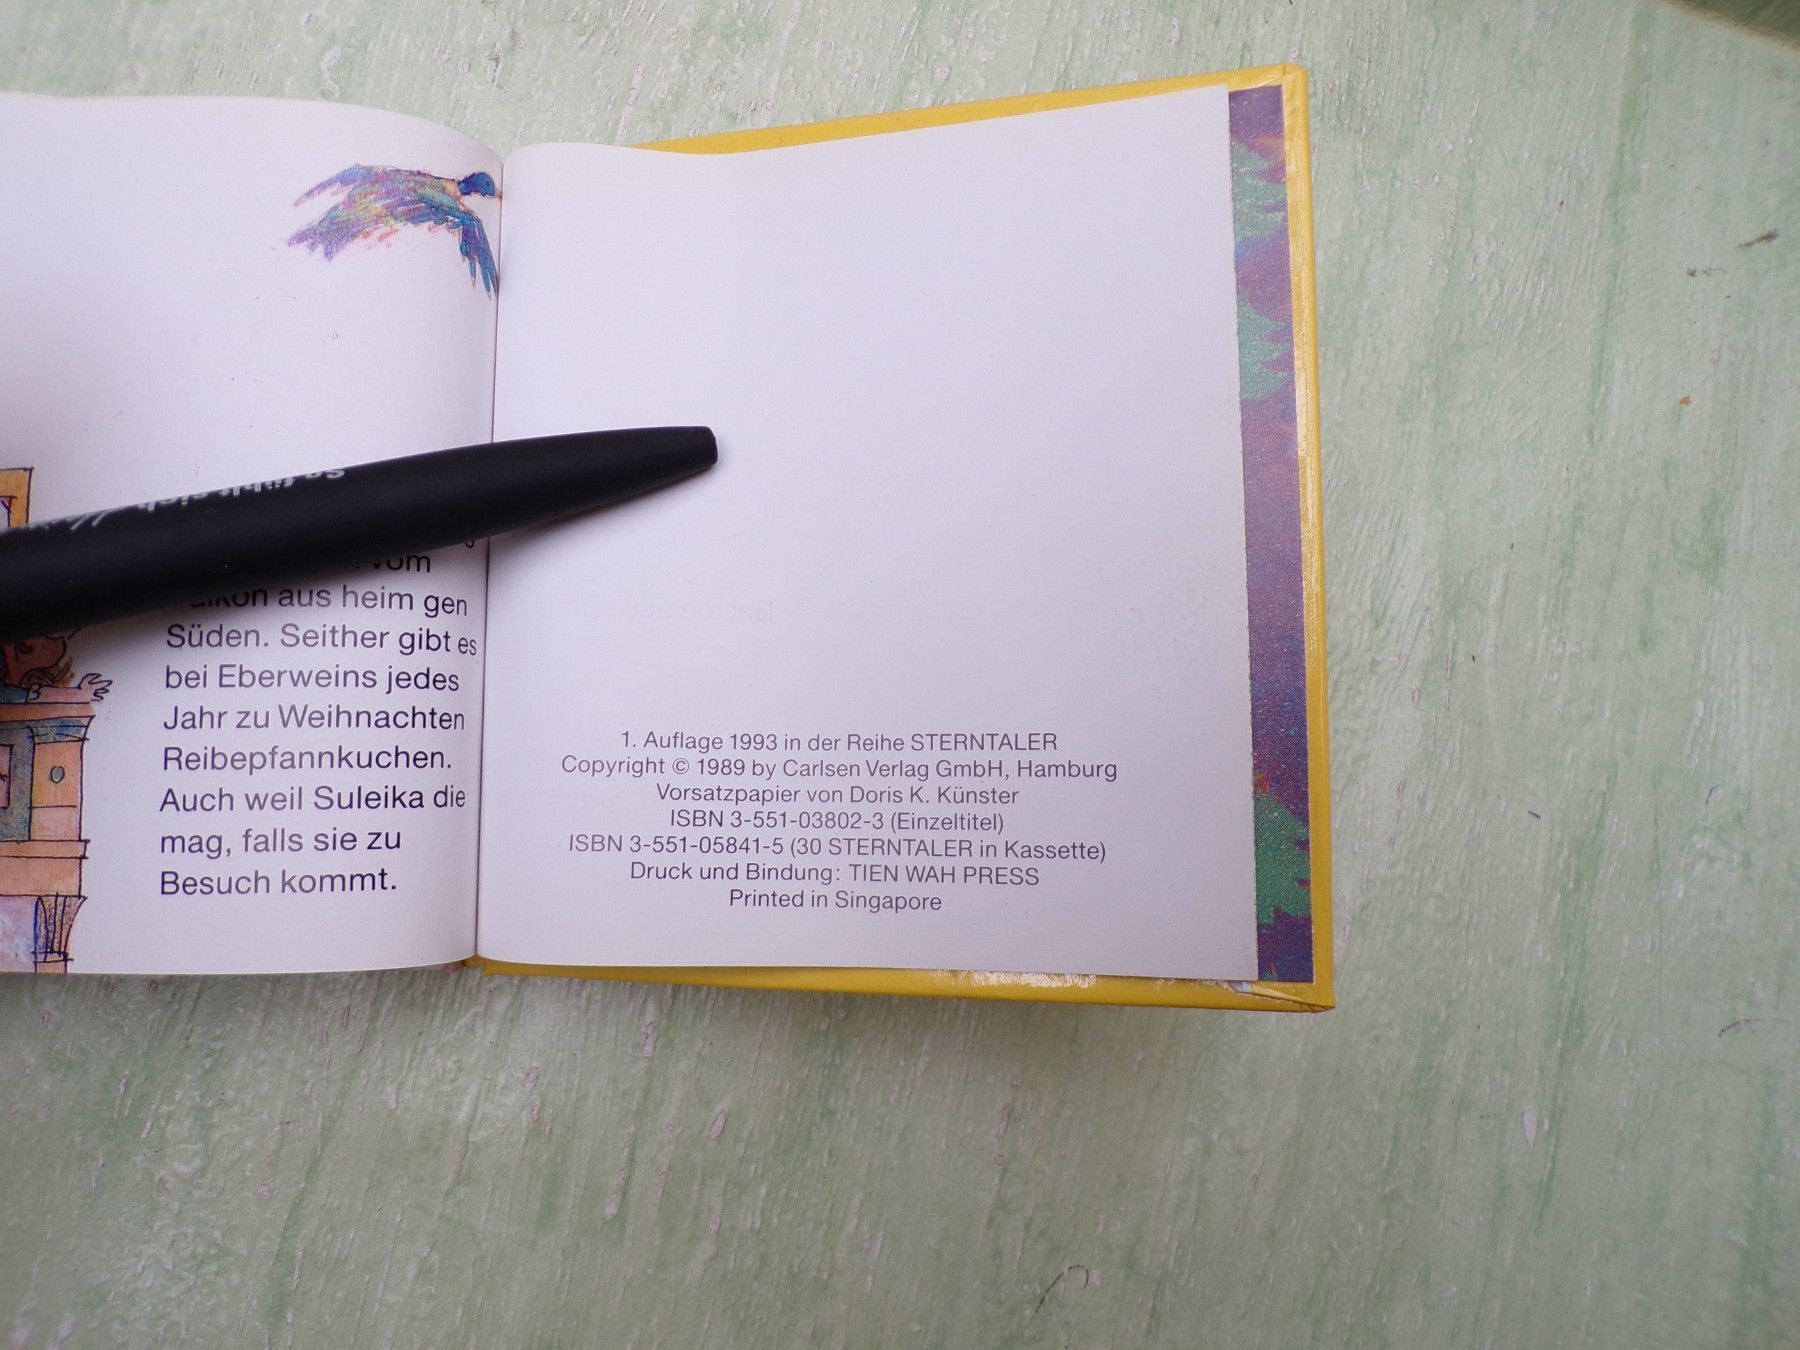 so fühlt sich
vom
Balkon aus heim gen
Süden. Seither gibt es
bei Eberweins jedes
Jahr zu Weihnachten
Reibepfannkuchen.
Auch weil Suleika die
mag, falls sie zu
Besuch kommt.
1. Auflage 1993 in der Reihe STERNTALER
Copyright © 1989 by Carlsen Verlag GmbH, Hamburg
Vorsatzpapier von Doris K. Künster
ISBN 3-551-03802-3 (Einzeltitel)
ISBN 3-551-05841-5 (30 STERNTALER in Kassette)
Druck und Bindung: TIEN WAH PRESS
Printed in Singapore